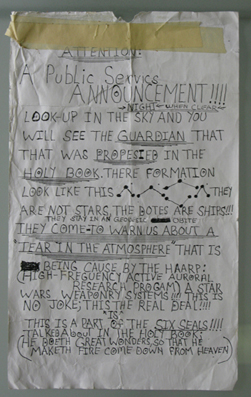 ATTENTION:
A Public Servics
ANNOUNCEMENT!!!!
NIGHT WHEN CLEAR
LOOK-UP IN THE SKY AND YOU
WILL SEE THE GUARDIAN THAT
THAT WAS PROPESIED IN THE
HOLY BOOK. THERE FORMATION
LOOK LIKE THIS THEY
ARE NOT STARS, THE DOTES ARE SHIPS!!!
THEY STAY IN AN GEOVETIC ORBITE
THEY COME-TO WARN US ABOUT A
"TEAR IN THE ATMOSPHERE" THAT IS
BEING CAUSE BY THE HAARP:
(HIGH-FREGUENCY ACTIVE AURORAL
RESEARCH PROGAM) A STAR
WARS WEAPONRY SYSTEMS!!! THIS IS
NO JOKE; THIS THE REAL DEAL!!!!
"IS"
THIS IS A PART OF THE SIX SEALS!!!!
TALKED ABOUT IN THE HOLY BOOK:
(HE DOETH GREAT WONDERS, SO THAT HE
MAKETH FIRE COME DOWN FROM HEAVEN)